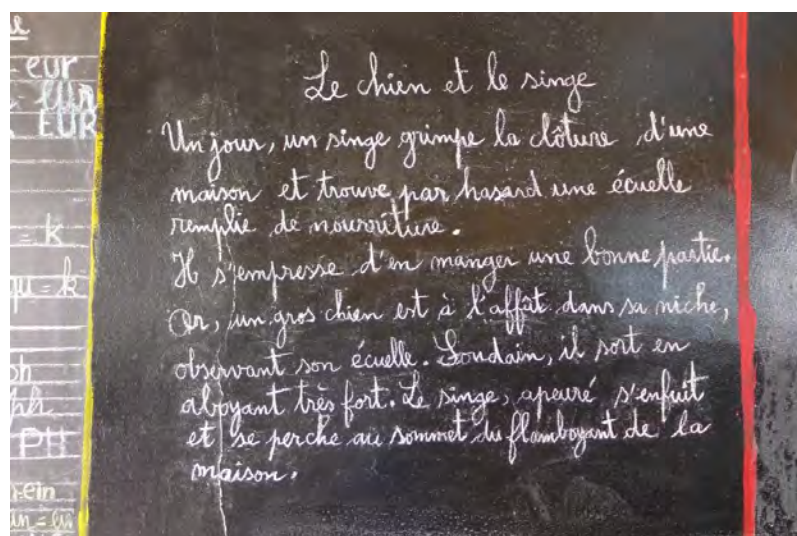 eur
EUR
= k
qu = k
ph
PH
ein
Le chien et le singe
Un jour, un singe grimpe la clôture d'une
maison et trouve par hasard une écuelle
remplie de nourriture.
Il s'empresse d'en manger une bonne partie.
Or, un gros chien est à l'affût dans sa niche,
observant son écuelle. Soudain, il sort en
aboyant très fort. Le singe, apeuré s'enfuit
et se perche au sommet du flamboyant de la
maison.